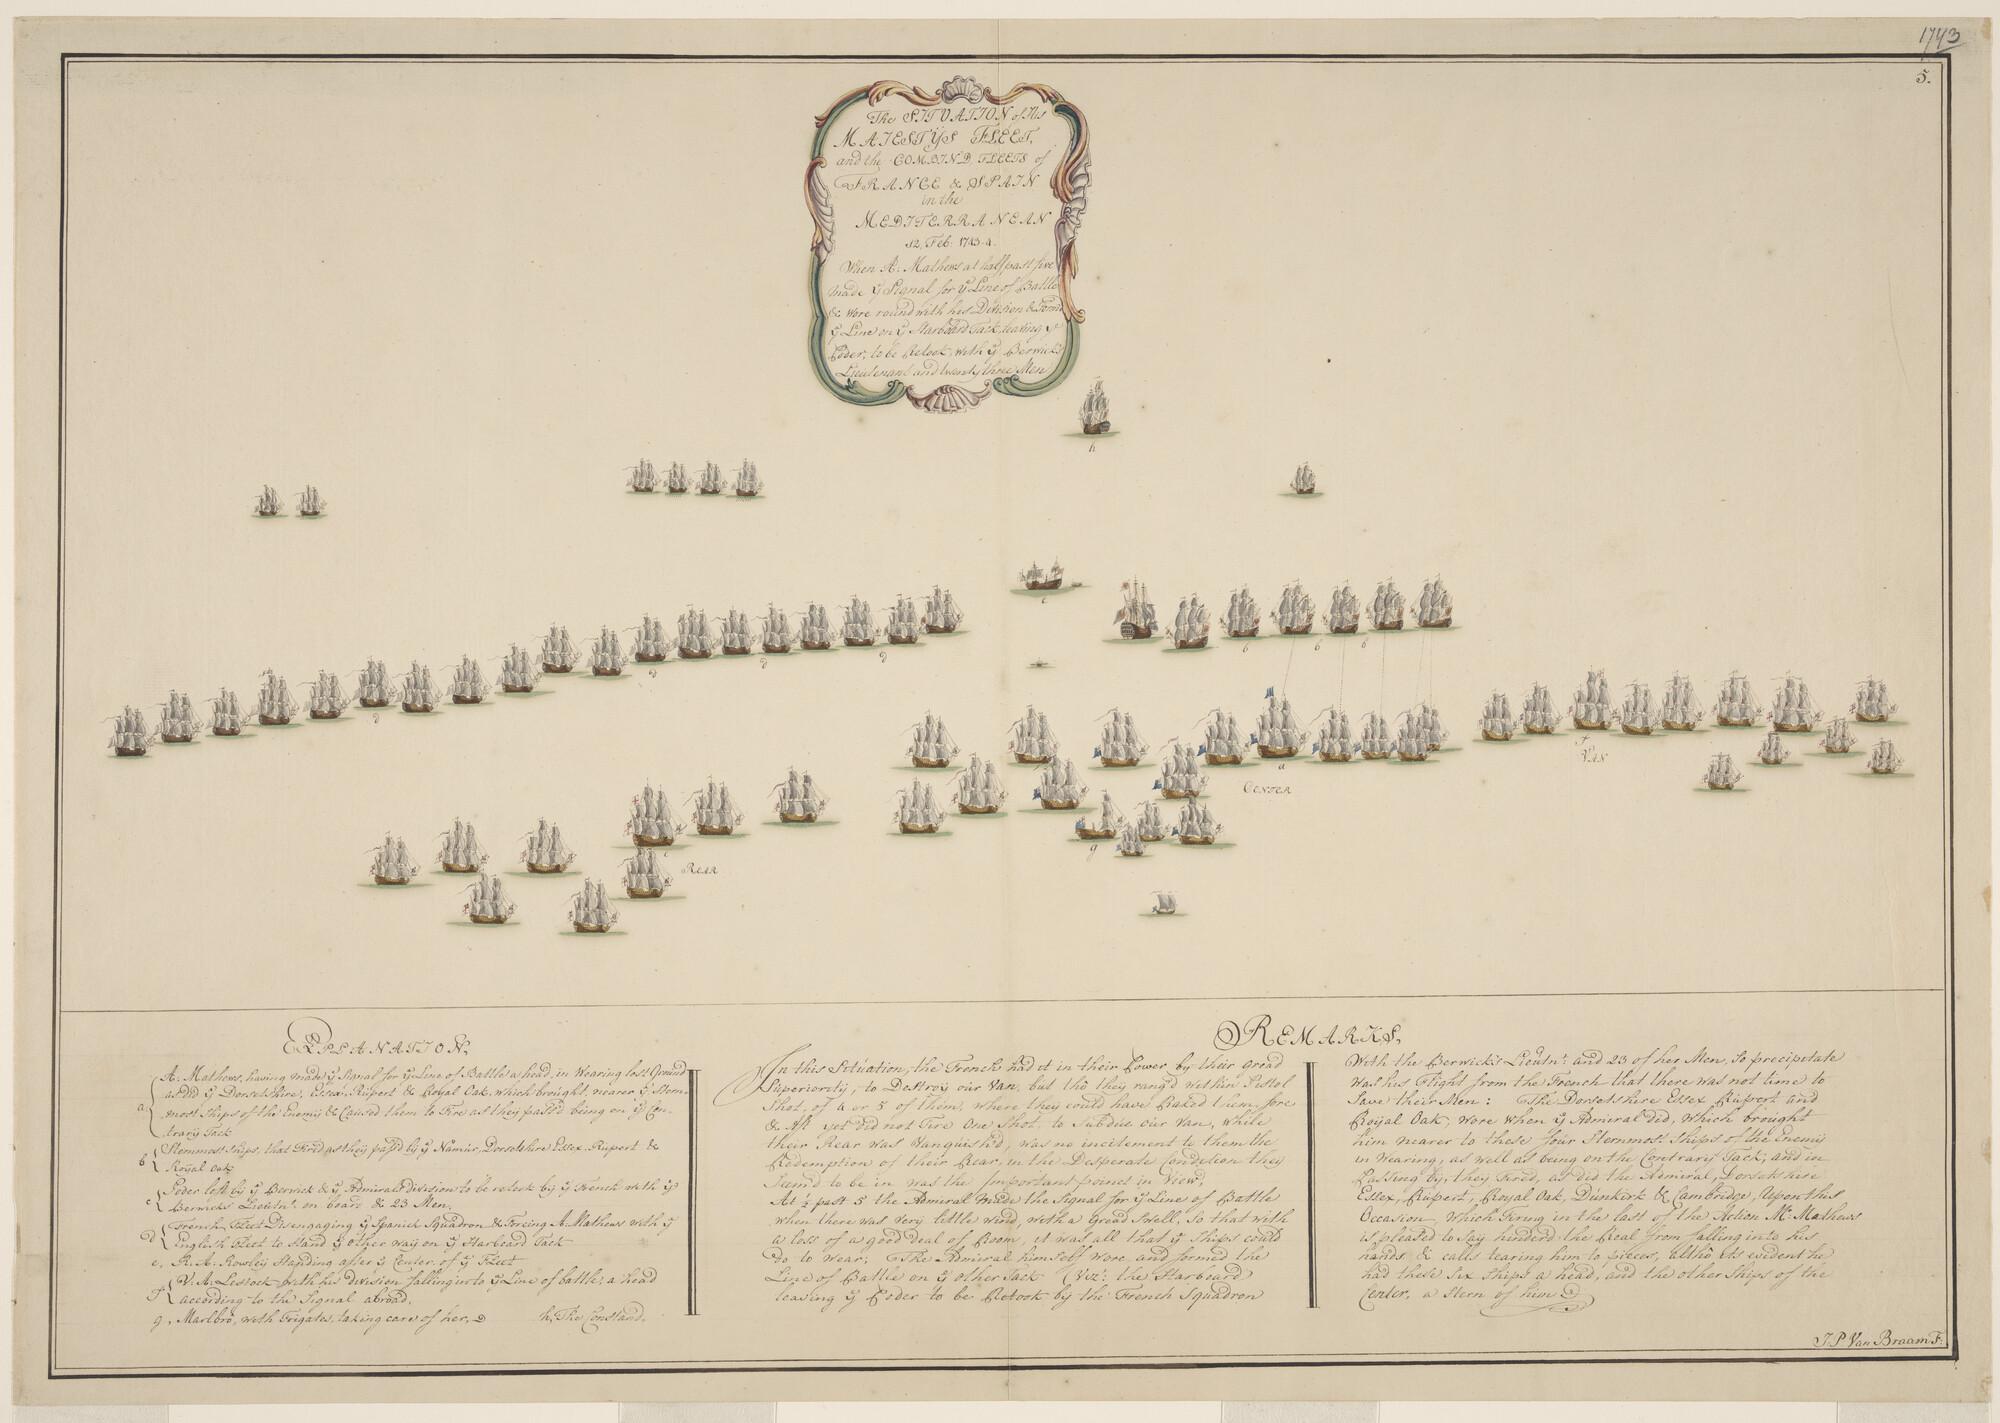 1743
5.
The SITUATION of His
MAJESTỹS FLEET,
and the COMBIND FLEETS of
FRANCE & SPAIN
in the
MEDITERRANEAN
12, Feb: 1743-4.
When A: Mathews at half past five
made ỹ Signal for ỹ Line of Battle
& wore round with his Division & Form'd
ỹ Line on ỹ Starboard Tack, leaving ỹe
Poder, to be Retook, with ỹ Berwick's
Lieutenant and twenty three Men
h
c
b b b
d d d d
a
f
VAN
CENTER
g
e
REAR
EXPLANATION.
a { A: Mathews, having made ỹ Signal for ỹ Line of Battle a head, in Wearing lost Ground
as did ỹ Dorsetshire, Essex, Rupert & Royal Oak, which brought, nearer ỹ Stern-
most Ships of the Enemy & Caused them to Fire as they pass'd being on ỹ Con-
trary Tack
b { Sternmost Ships, that Fired as they pass'd by ỹ Namur, Dorsetshire Essex, Rupert &
Royal Oak
c { Poder left by ỹ Berwick & ỹ Admirals division to be retook by ỹ French with ỹ
Berwicks Lieutn: on board & 23 Men.
d { French Fleet Disengaging ỹ Spanish Squadron & Forcing A: Mathews with ỹ
English Fleet to Stand ỹ other way on ỹ Starboard Tack
e, R: A: Rowley Standing after ỹ Center of ỹ Fleet
f { V: A: Lestock with his division falling into ỹ Line of battle, a head
according to the Signal abroad.
g, Marlbro, with Frigates, taking care of her, h, The Constand,
REMARKS,
In this Situation, the French had it in their Power by their Great
Superiority, to Destroy our Van, but tho they rang'd within Pistol
Shot, of 4 or 5 of them, where they could have Raked them fore
& Aft yet did not Fire One Shot, to Subdue our Van, while
their Rear was Vanquish'd, was no incitement to them the
Redemption of their Rear, in the Desperate Condition they
Seem'd to be in was the Important point in View,
At ½ past 5 the Admiral made the Signal for ỹ Line of Battle
when there was Very little Wind, with a Great Swell, so that with
a loss of a good Deal of Room, it was all that ỹ Ships could
do to Wear; The Admiral himself wore and formed the
Line of Battle on ỹ other Tack (Viz: the Starboard)
leaving ỹ Poder to be Retook by the French Squadron
With the Berwick's Lieutn: and 23 of her Men, So precipitate
was his Flight from the French that there was not time to
Save their Men: The Dorsetshire Essex Rupert and
Royal Oak, wore when ỹ Admiral did, which brought
him nearer to these four Sternmost Ships of the Enemy
in Wearing, as well as being on the Contrary Tack, and in
Passing by, they Fired, as did the Admiral, Dorsetshire
Essex, Rupert, Royal Oak, Dunkirk & Cambridge, Upon this
Occasion which Firing in the last of the Action Mr: Mathews
is pleased to Say hinderd the Real from falling into his
hands, & calls tearing him to pieces, altho its evident he
had these Six Ships a head, and the other Ships of the
Center, a Stern of him
J. P. Van Braam F: